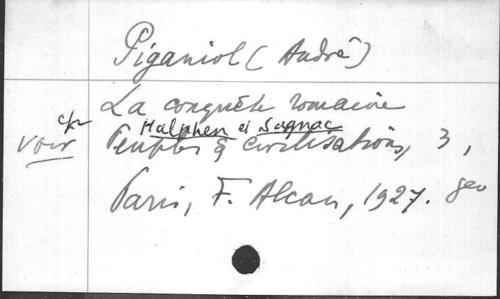 Piganiol (André)
La conquête romaine
Halphen et Sagnac
voir Peuples & civilisations, 3,
Paris, F. Alcan, 1927.